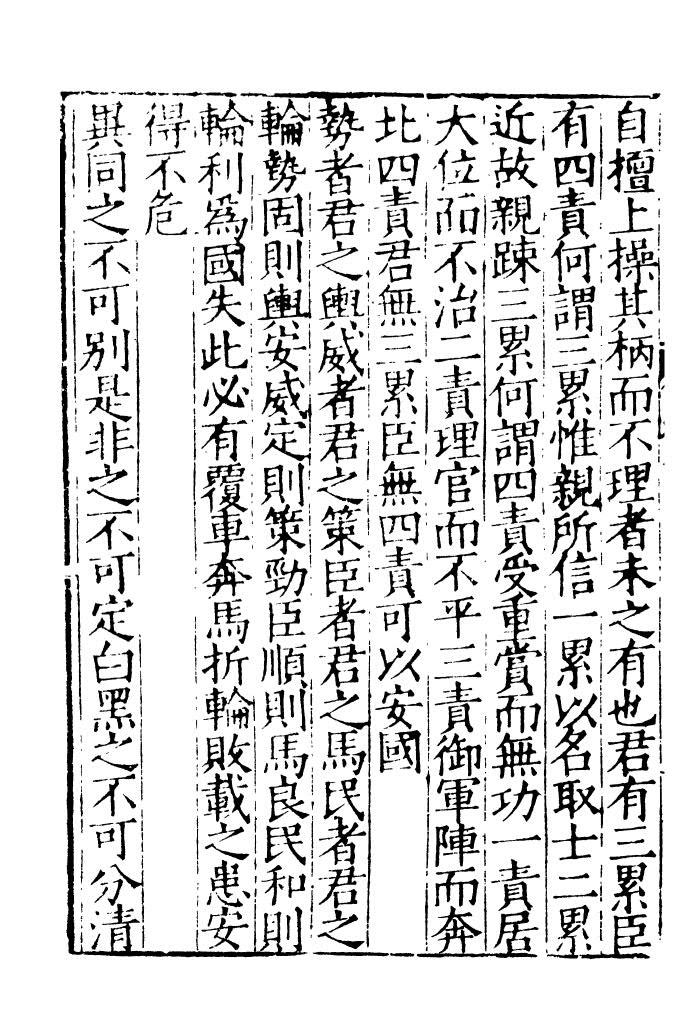 自擅上操其柄而不理者未之有也君有三累臣
有四責何謂三累惟親所信一累以名取士二累
近故親踈三累何謂四責受重賞而無功一責居
大位而不治二責理官而不平三責御軍陣而奔
北四責君無三累臣無四責可以安國
勢者君之輿威者君之策臣者君之馬民者君之
輪勢固則輿安威定則策勁臣順則馬良民和則
輪利為國失此必有覆車奔馬折輪敗載之患安
得不危
異同之不可別是非之不可定白黑之不可分清